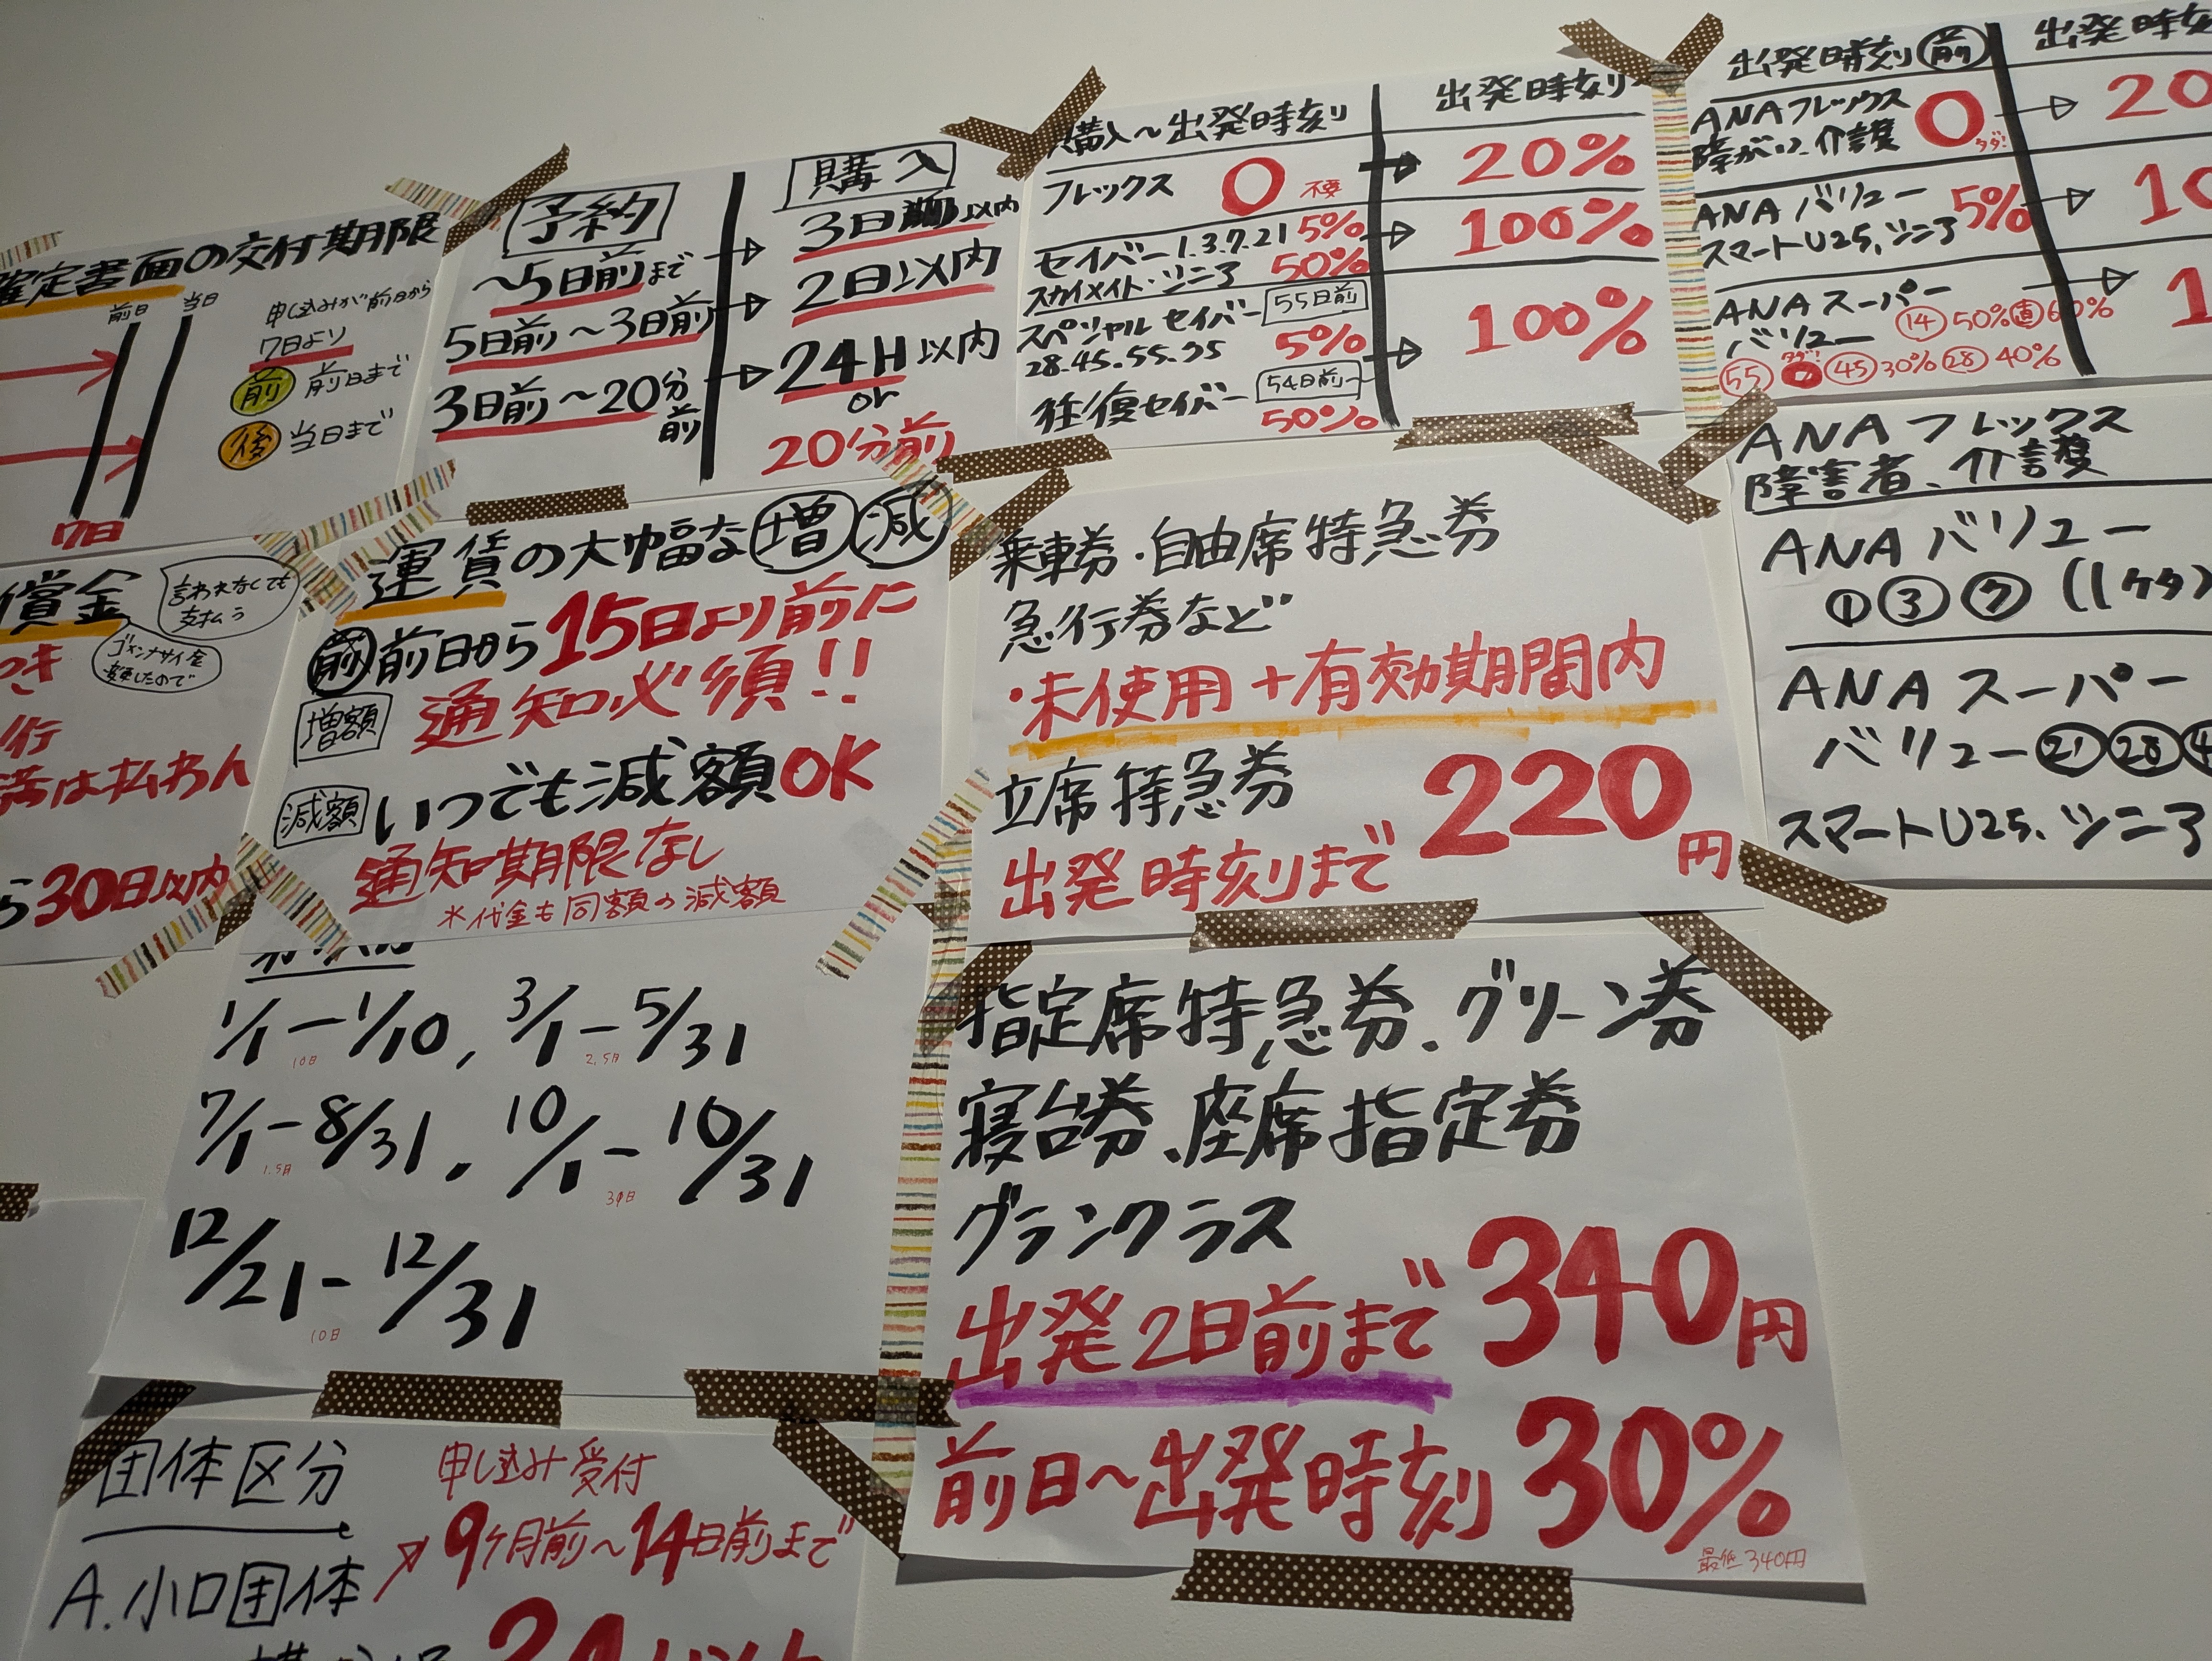 確定書面の交付期限
前日 当日
申し込みが前日から
7日より
前 前日まで
後 当日まで
7日
予約 購入
～5日前まで → 3日以内
5日前～3日前 → 2日以内
3日前～20分前 → 24H以内
or
20分前
購入～出発時刻 出発時刻
フレックス 0 不要 → 20%
セイバー1.3.7.21 5% → 100%
スカイメイト・シニア 50%
スペシャルセイバー 55日前
28.45.55.75 5% → 100%
往復セイバー 54日前
50%
出発時刻前 出発時刻
ANAフレックス 0 タダ! → 20
障がい、介護
ANAバリュー 5% → 10
スマートU25、シニア
ANAスーパー → 1
バリュー 14 50% 直 60%
55 タダ! 0 45 30% 28 40%
償金
言われなくても
支払う
ゴメンナサイ金
変更したので
つき
行
満は払わん
ら30日以内
運賃の大幅な増減
前 前日から15日より前に
増額 通知必須!!
減額 いつでも減額OK
通知期限なし
※代金も同額の減額
乗車券・自由席特急券
急行券など
・未使用+有効期間内
立席特急券 220円
出発時刻まで
ANAフレックス
障害者、介護
ANAバリュー
① ③ ⑦ (1ケタ)
ANAスーパー
バリュー ㉑ ㉘ 4
スマートU25、シニア
1/1-1/10, 3/1-5/31
10日 2.5日
7/1-8/31, 10/1-10/31
1.5日
12/21-12/31
10日
指定席特急券、グリーン券
寝台券、座席指定券
グランクラス
出発2日前まで 340円
前日～出発時刻 30%
最低340円
団体区分 申し込み受付
9ヶ月前～14日前まで
A.小口団体